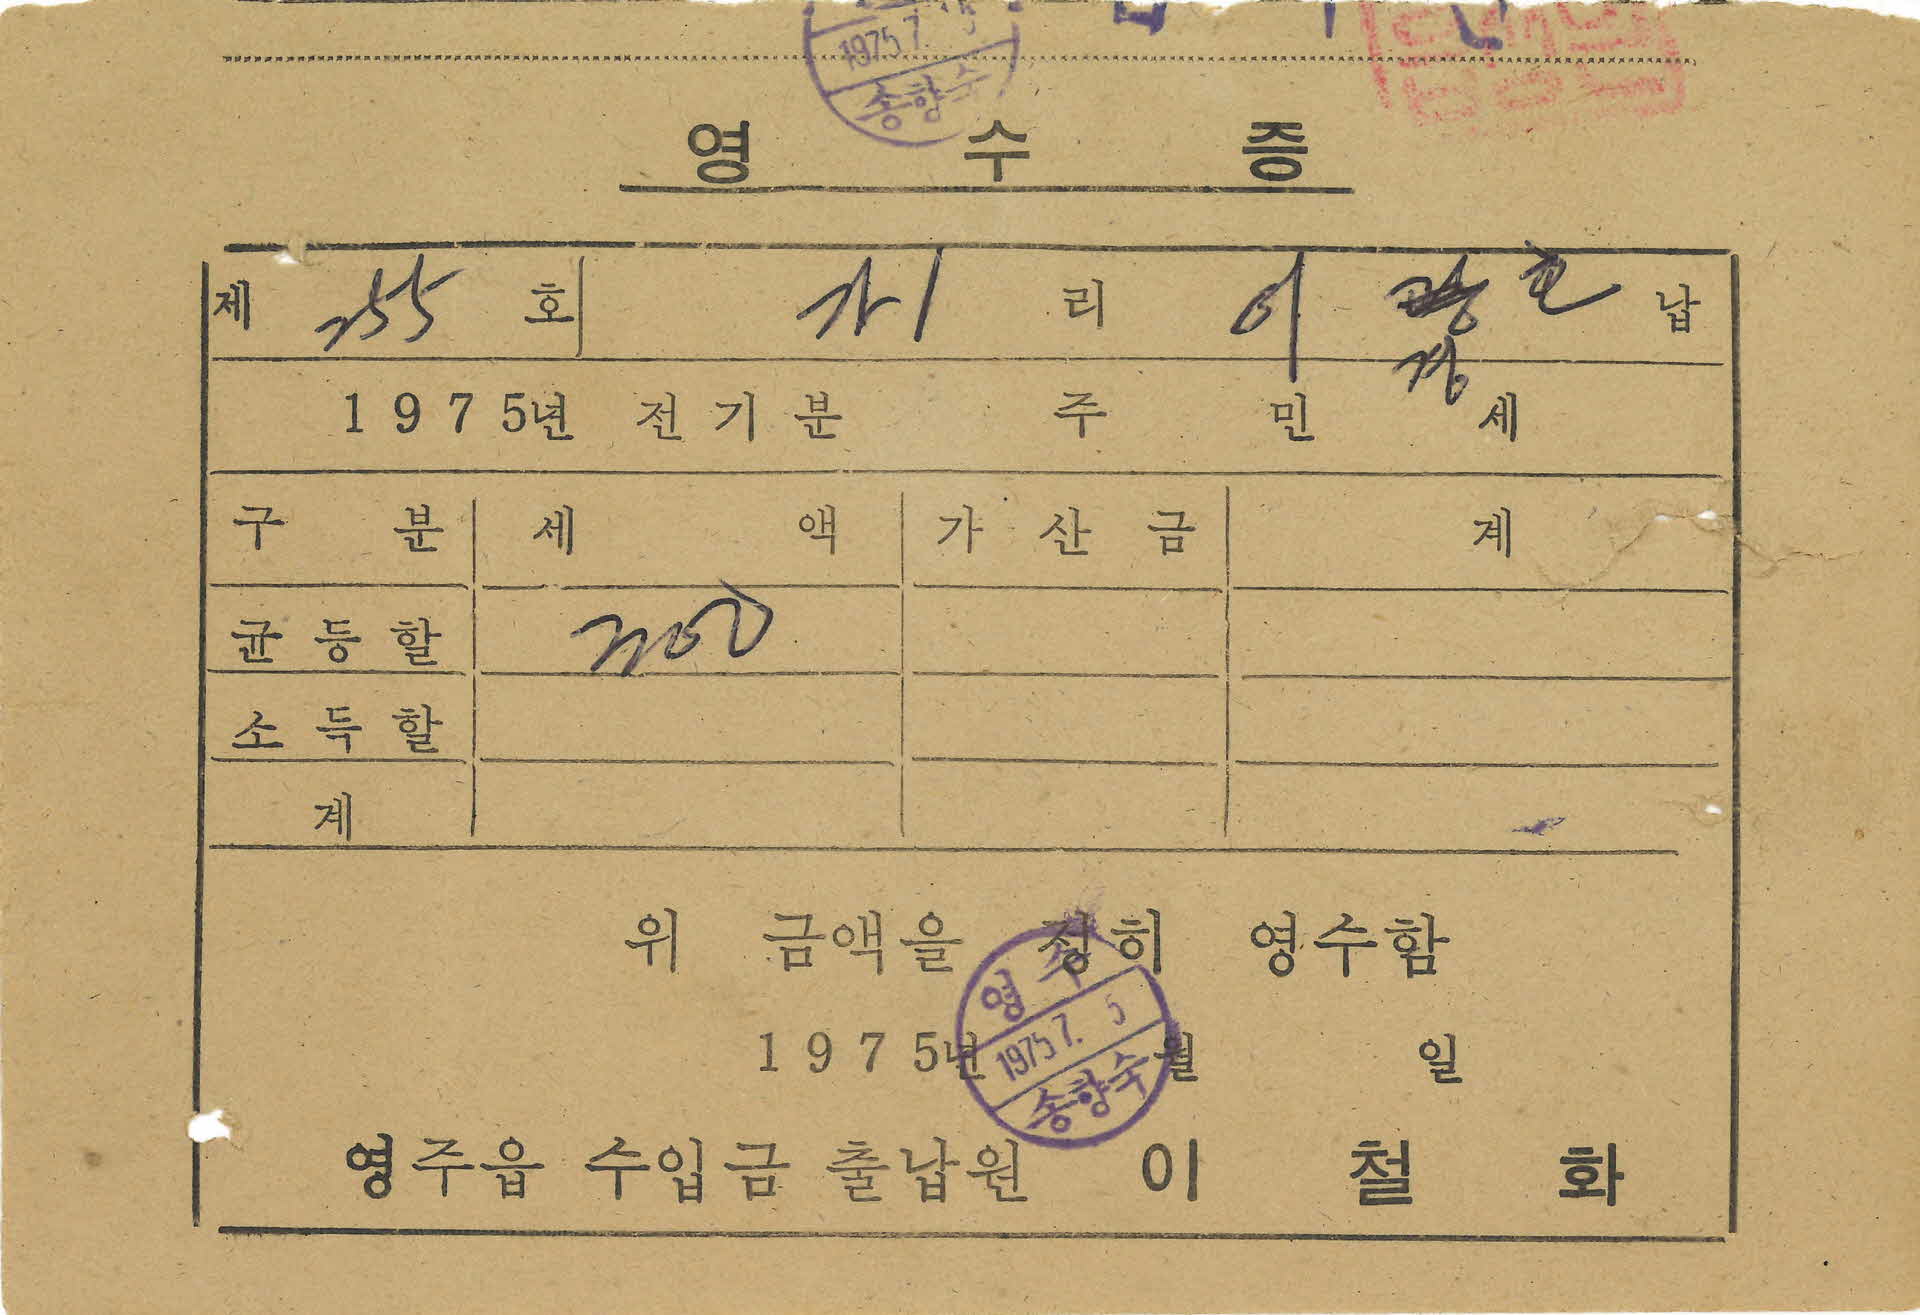 1975 7. 5
송향수
영 수 증
제 255 호 가1 리 이 경호 납
1975년 전기분 주 민 세
구 분 세 액 가 산 금 계
균등할 300
소득할
계
위 금액을 정히 영수함
영수
1975 7. 5
송향수
1975년 월 일
영주읍 수입금 출납원 이 철 화